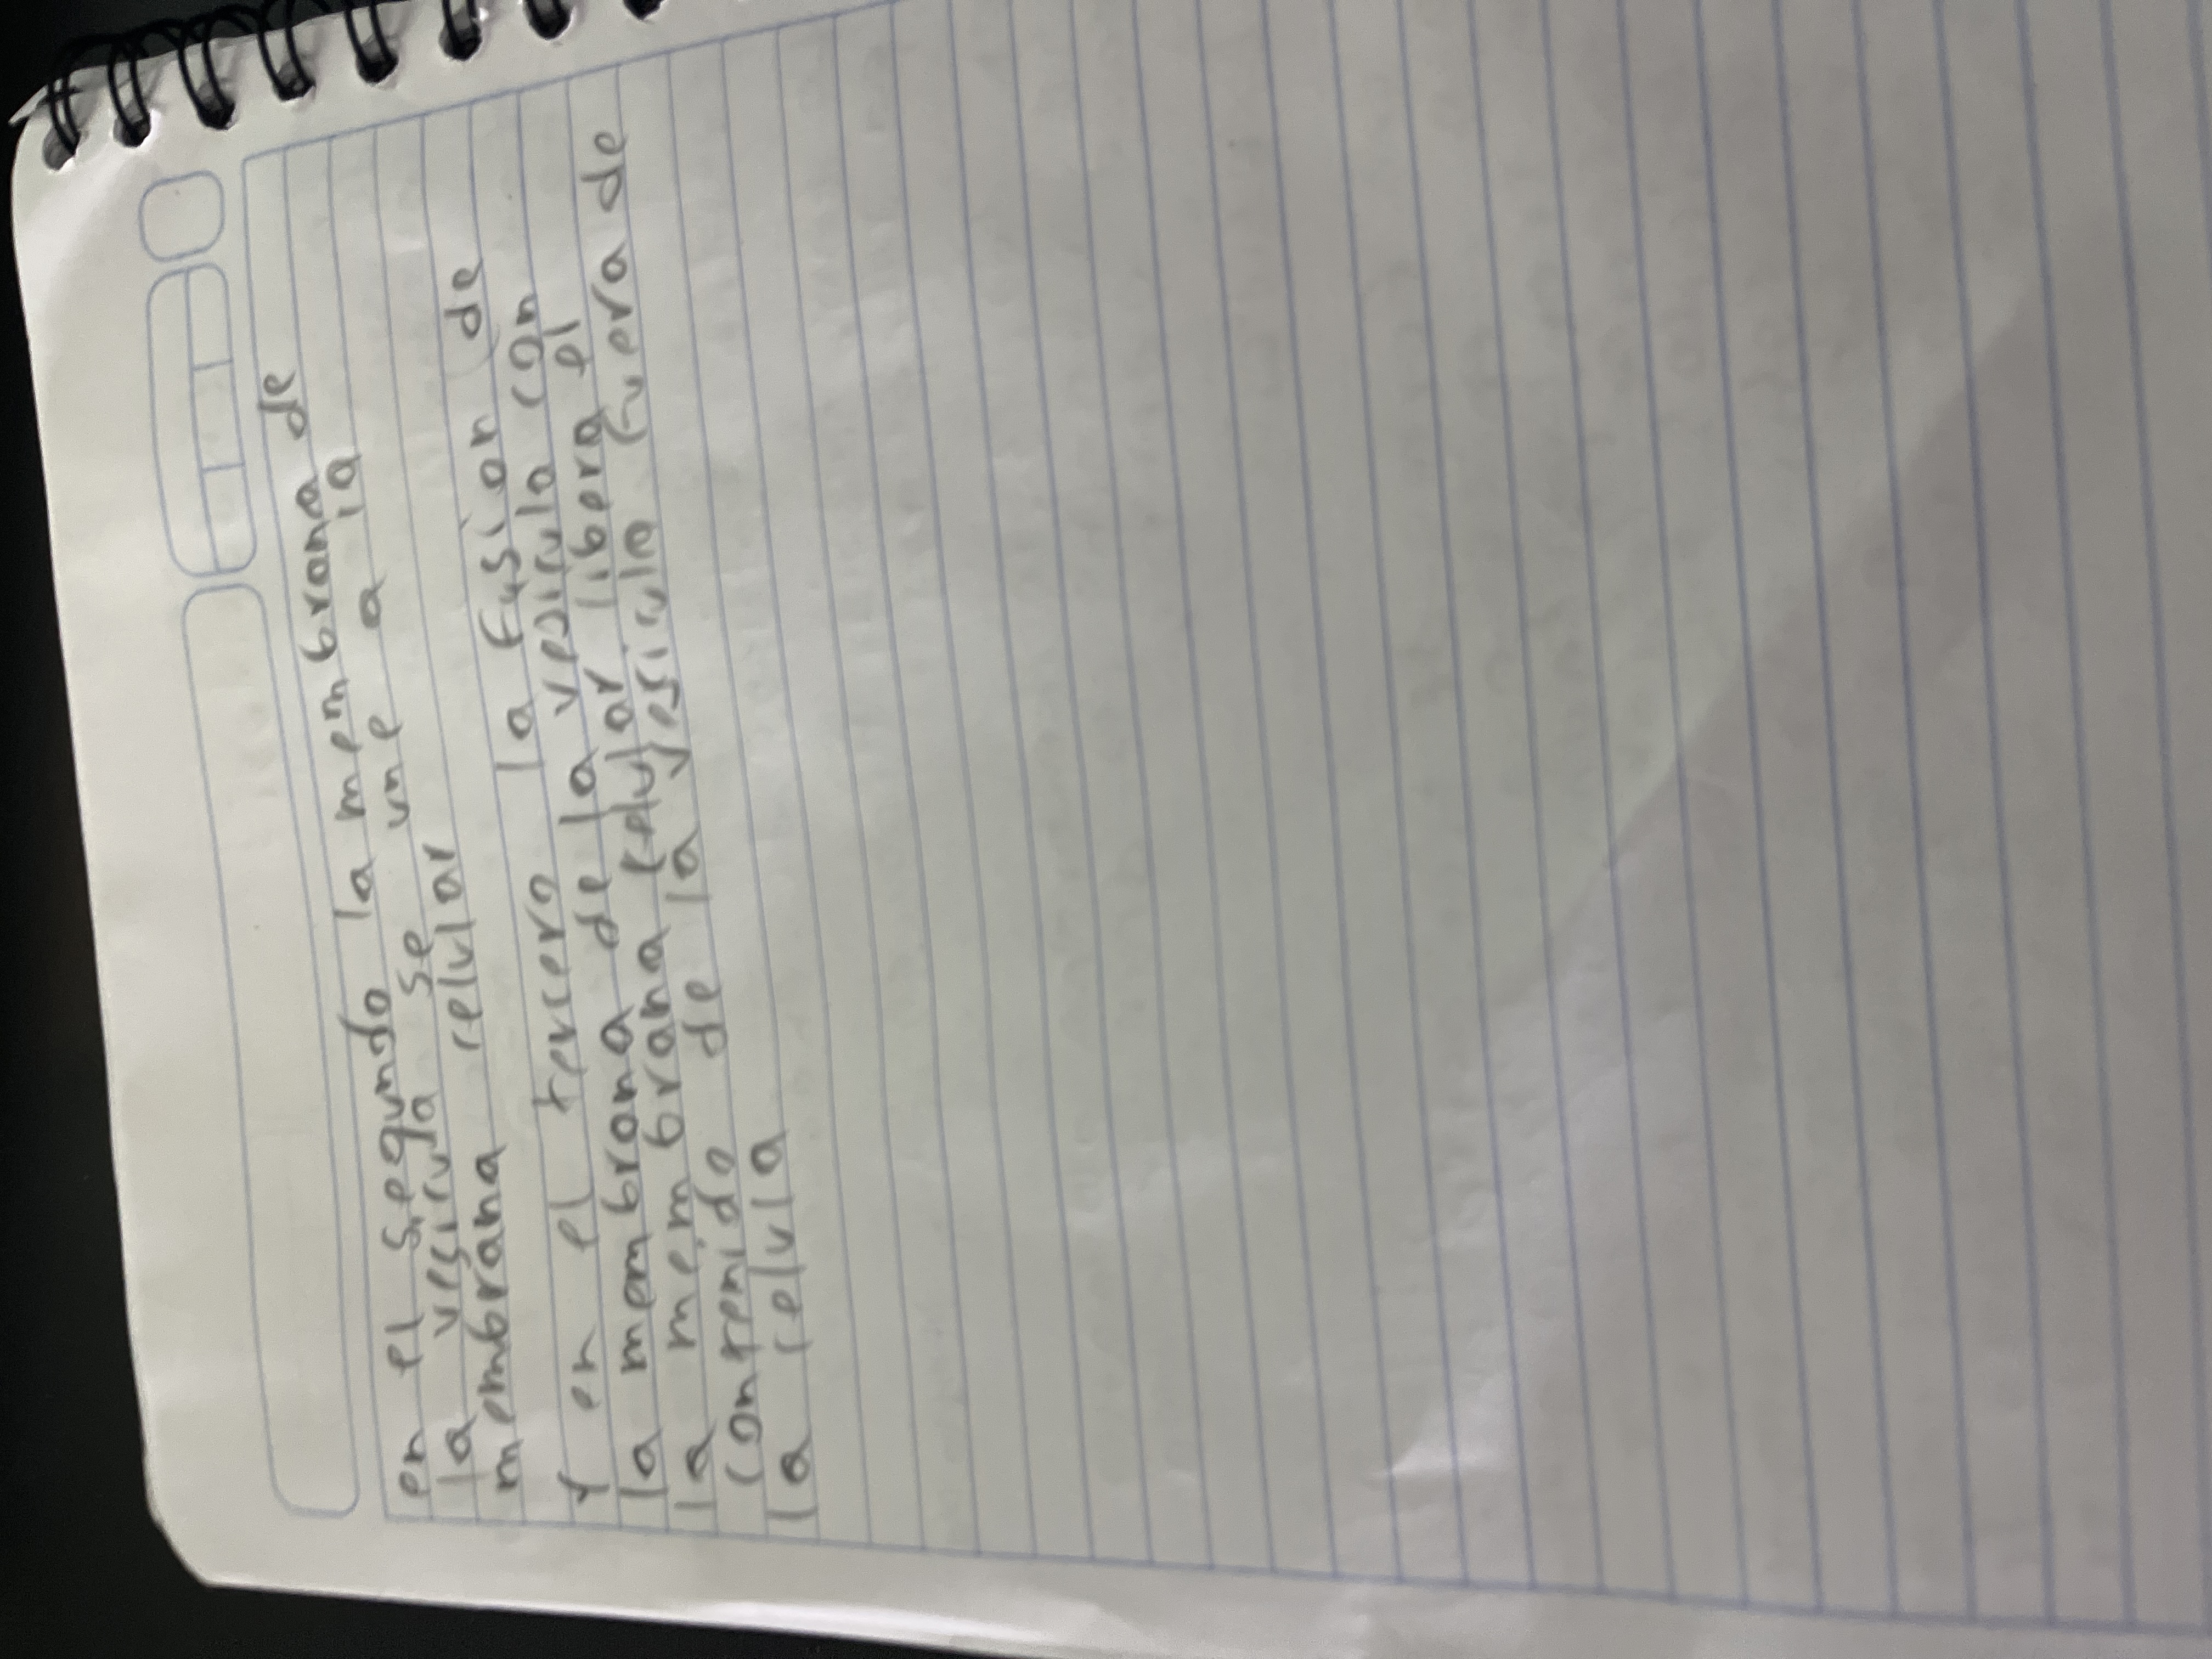 en el segundo la membrana de
la vesicula se une a la
membrana celular
Y en el tercero la fusion de
la membrana de la vesicula con
la membrana celular libera el
contenido de la vesicula fuera de
la celula